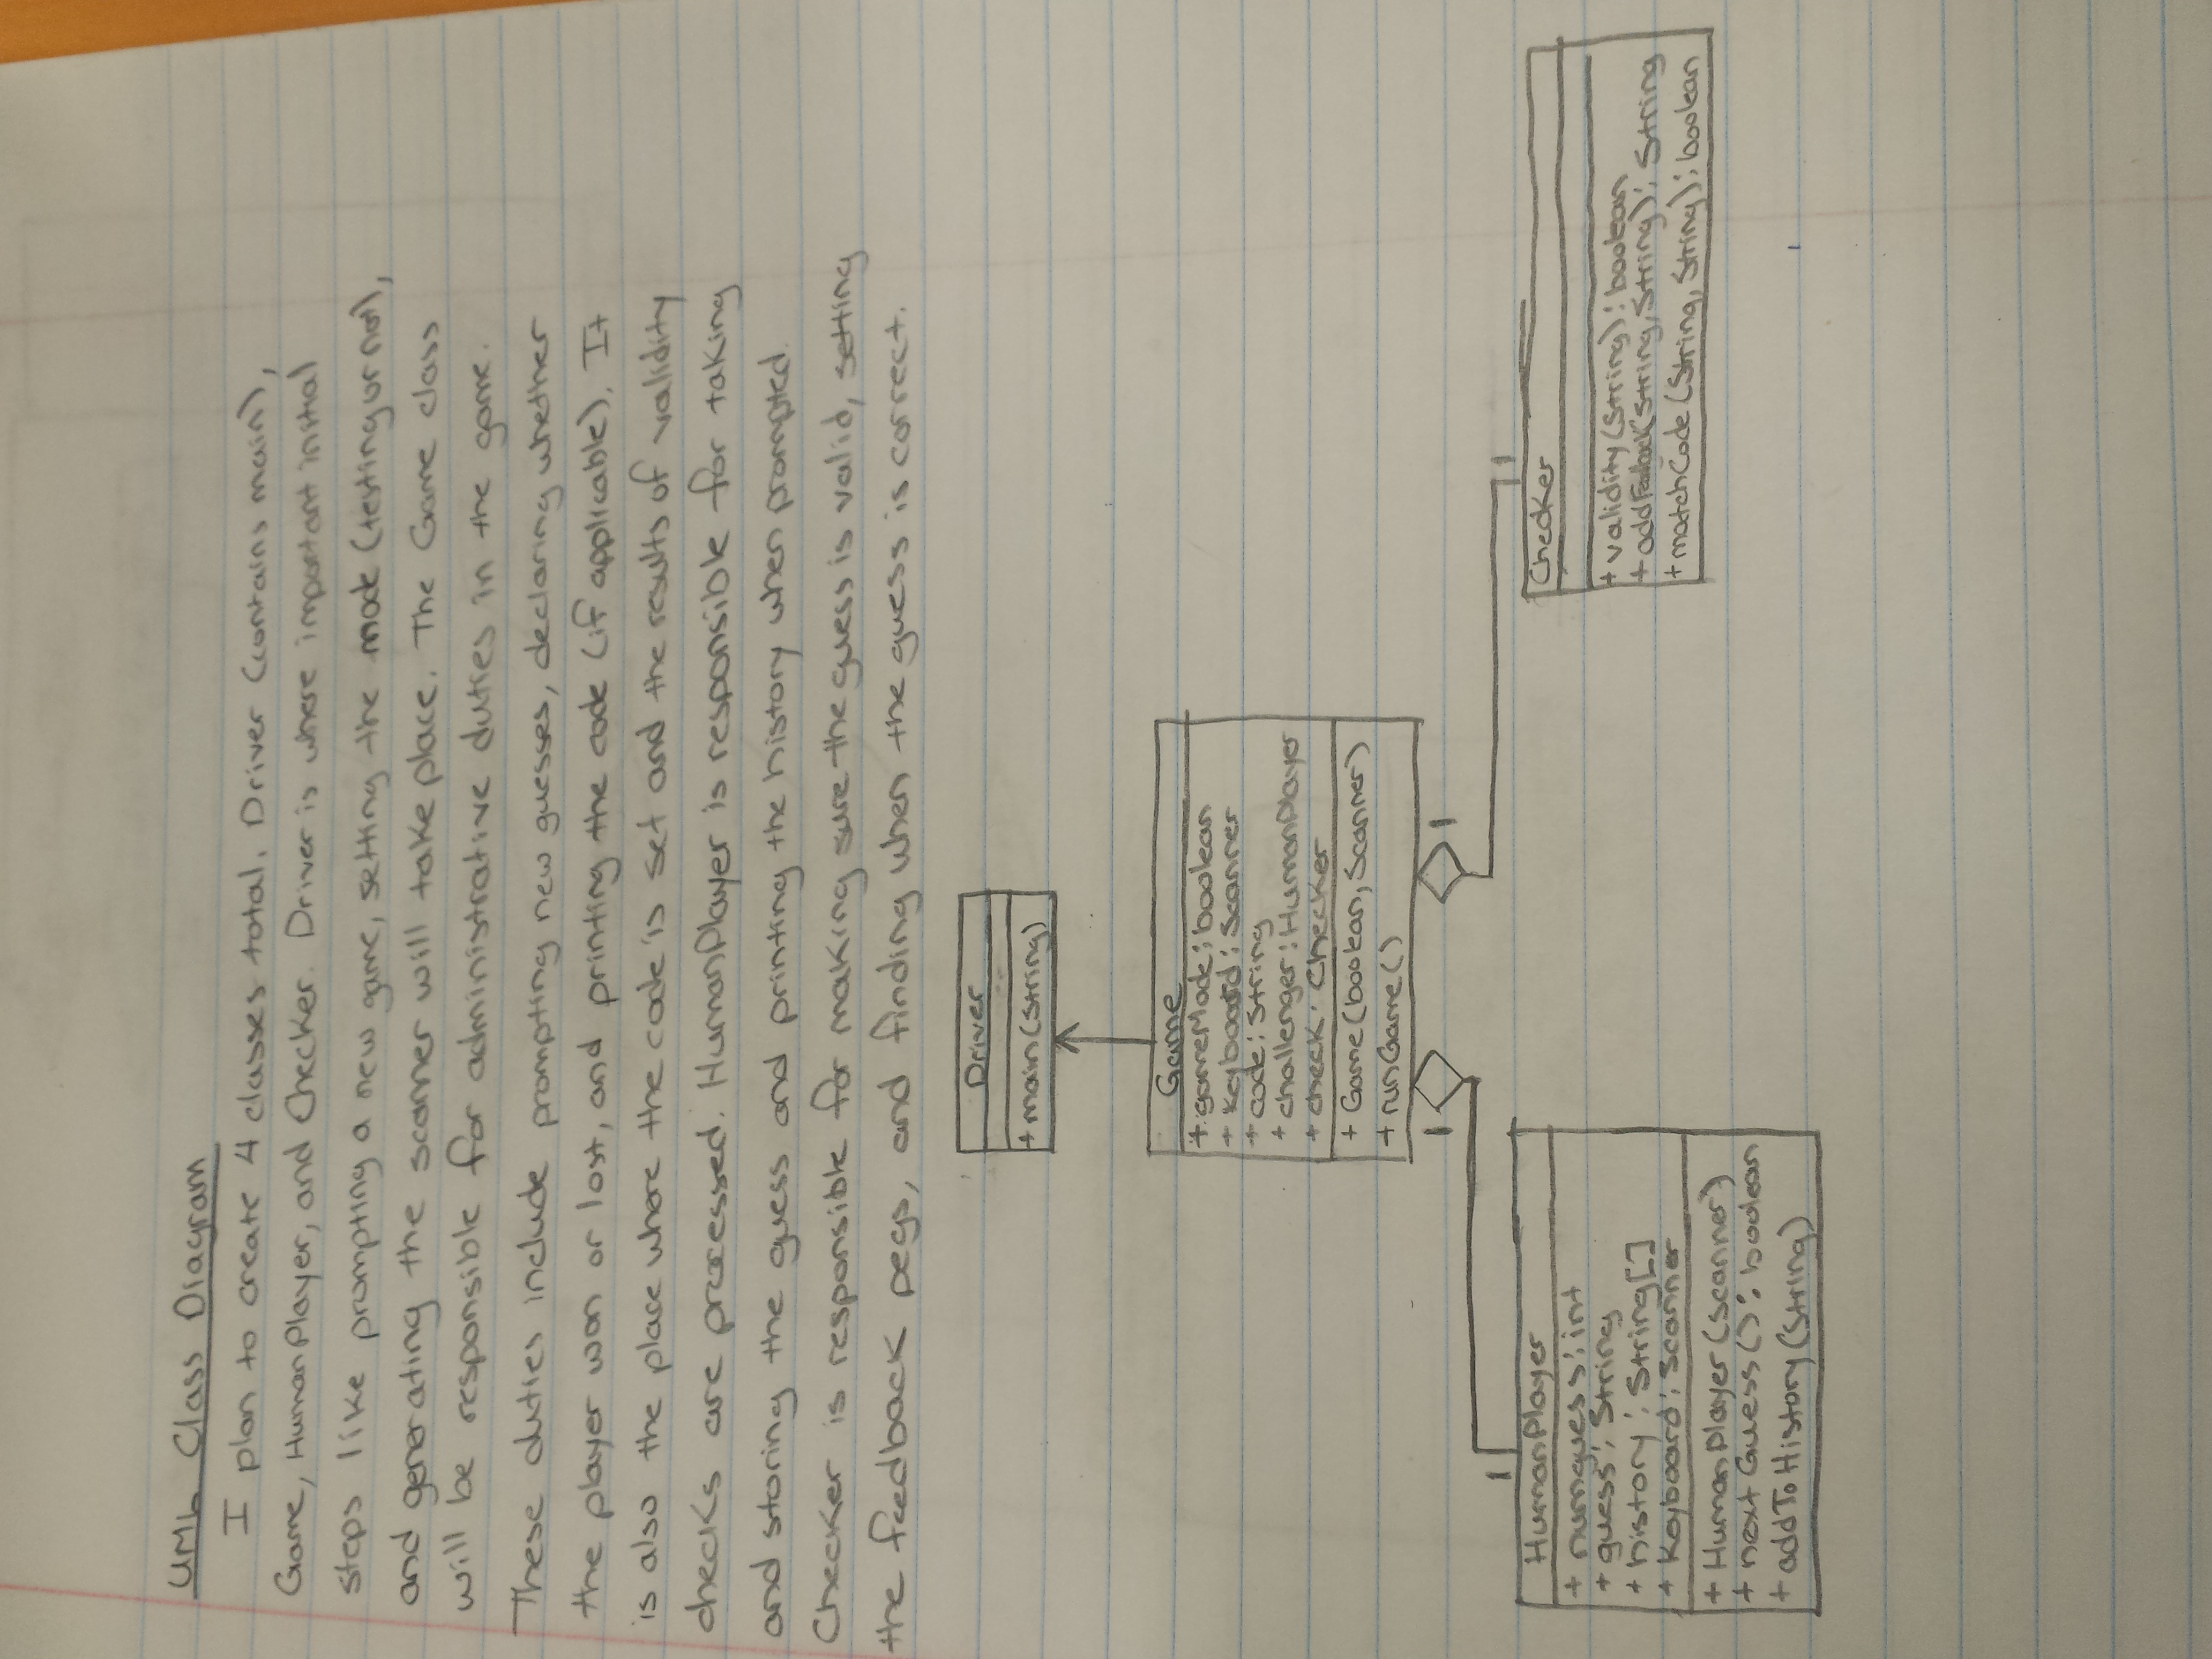 UML Class Diagram
I plan to create 4 classes total. Driver (contains main),
Game, HumanPlayer, and Checker. Driver is where important initial
steps like prompting a new game, setting the mode (testing or not),
and generating the scanner will take place. The Game class
will be responsible for administrative duties in the game.
These duties include prompting new guesses, declaring whether
the player won or lost, and printing the code (if applicable). It
is also the place where the code is set and the results of validity
checks are processed. HumanPlayer is responsible for taking
and storing the guess and printing the history when prompted.
Checker is responsible for making sure the guess is valid, setting
the feedback pegs, and finding when the guess is correct.
Driver
+ main(string)
Game
+ gameMode: boolean
+ Keyboard: Scanner
+ code: String
+ challenger: HumanPlayer
+ check: Checker
+ Game(boolean, Scanner)
+ runGame()
1
1
1
1
HumanPlayer
+ numguess: int
+ guess: String
+ history: String[]
+ Keyboard: Scanner
+ HumanPlayer(Scanner)
+ nextGuess(): boolean
+ addToHistory(String)
Checker
+ validity(String): boolean
+ addFeedback(String, String): String
+ matchCode(String, String): boolean